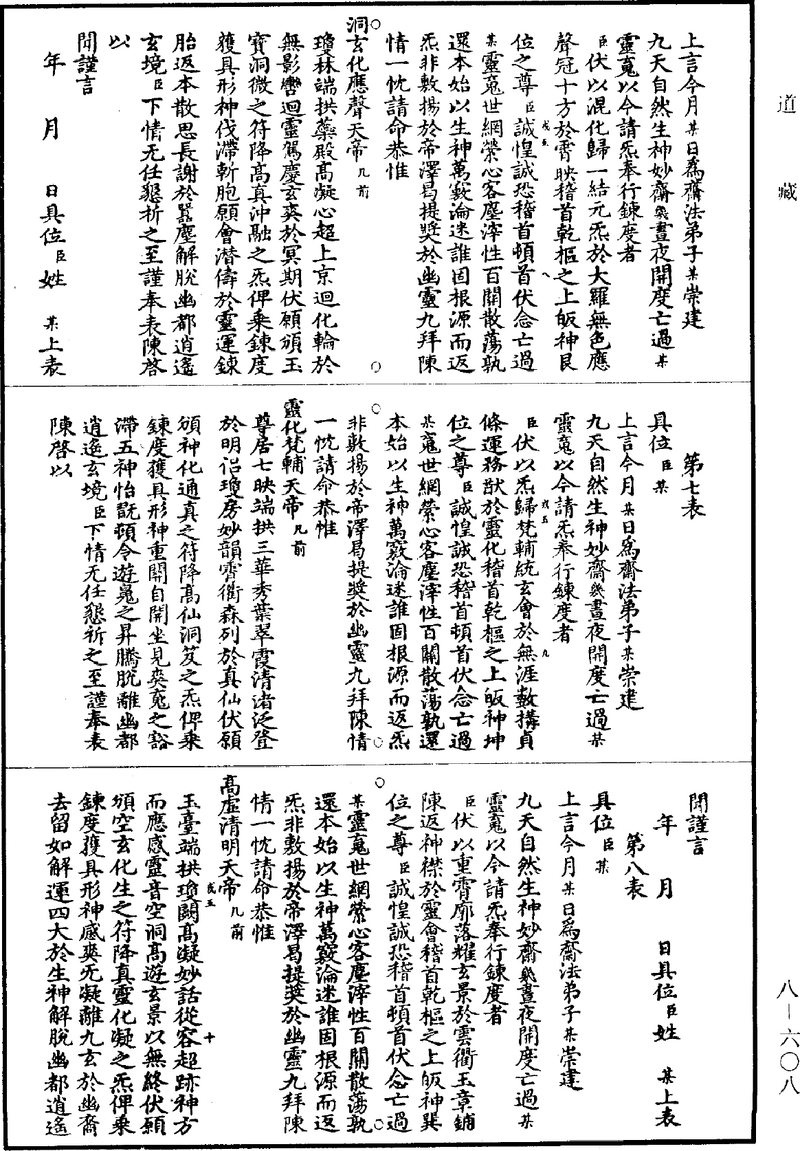 道藏
上言今月某日爲齋法弟子某崇建
九天自然生神妙齋幾晝夜開度亡過某
靈䰟以今請炁奉行鍊度者
臣伏以混化歸一結元炁於大羅無色應
聲冠十方於霄映稽首乾樞之上皈神艮
位之尊臣誠惶誠恐稽首頓首伏念亡過
某靈䰟世網縈心客塵滓性百關散蕩孰
還本始以生神萬竅淪迷誰固根源而返
炁非敷揚於帝澤曷提奬於幽靈九拜陳
情一忱請命恭惟
洞玄化應聲天帝几前
瓊林端拱蘂殿高凝心超上京迴化輪於
無影轡迴靈駕慶玄爽於冥期伏願頒玉
寶洞微之符降高真沖融之炁俾乘鍊度
獲具形神伐滯斬胞願會潛儔於靈運鍊
胎返本散思長謝於嚣塵解脫幽都逍遙
玄境臣下情无任懇祈之至謹奉表陳啓
以
聞謹言
年 月 日具位臣姓 某上表
第七表
具位臣某
上言今月某日爲齋法弟子某崇建
九天自然生神妙齋幾晝夜開度亡過某
靈䰟以今請炁奉行鍊度者
臣伏以炁歸梵輔統玄會於無涯數搆貞
條運務猷於靈化稽首乾樞之上皈神坤
位之尊臣誠惶誠恐稽首頓首伏念亡過
某䰟世網縈心客塵滓性百關散蕩孰還
本始以生神萬竅淪迷誰固根源而返炁
非敷揚於帝澤曷提奬於幽靈九拜陳情
一忱請命恭惟
靈化梵輔天帝几前
尊居七映端拱三華秀葉翠霞清渚泛登
於明侣瓊房妙韻霄衢森列於真仙伏願
頒神化通真之符降高仙洞笈之炁俾乘
鍊度獲具形神重關自開坐見爽䰟之豁
滯五神怡翫頓令遊䰟之昇騰脫離幽都
逍遙玄境臣下情无任懇祈之至謹奉表
陳啓以
聞謹言
年 月 日具位臣姓 某上表
第八表
具位臣某
上言今月某日爲齋法弟子某崇建
九天自然生神妙齋幾晝夜開度亡過某
靈䰟以今請炁奉行鍊度者
臣伏以重霄廓落耀玄景於雲衢玉章鋪
陳返神襟於靈會稽首乾樞之上皈神巽
位之尊臣誠惶誠恐稽首頓首伏念亡過
某靈䰟世網縈心客塵滓性百關散蕩孰
還本始以生神萬竅淪迷誰固根源而返
炁非敷揚於帝澤曷提奬於幽靈九拜陳
情一忱請命恭惟
高虛清明天帝几前
玉臺端拱瓊闕高凝妙話從容超跡神方
而應感靈音空洞高遊玄景以無終伏願
頒空玄化生之符降真靈化凝之炁俾乘
鍊度獲具形神感爽无凝離九玄於幽裔
去留如解運四大於生神解脫幽都逍遙
八—六〇八